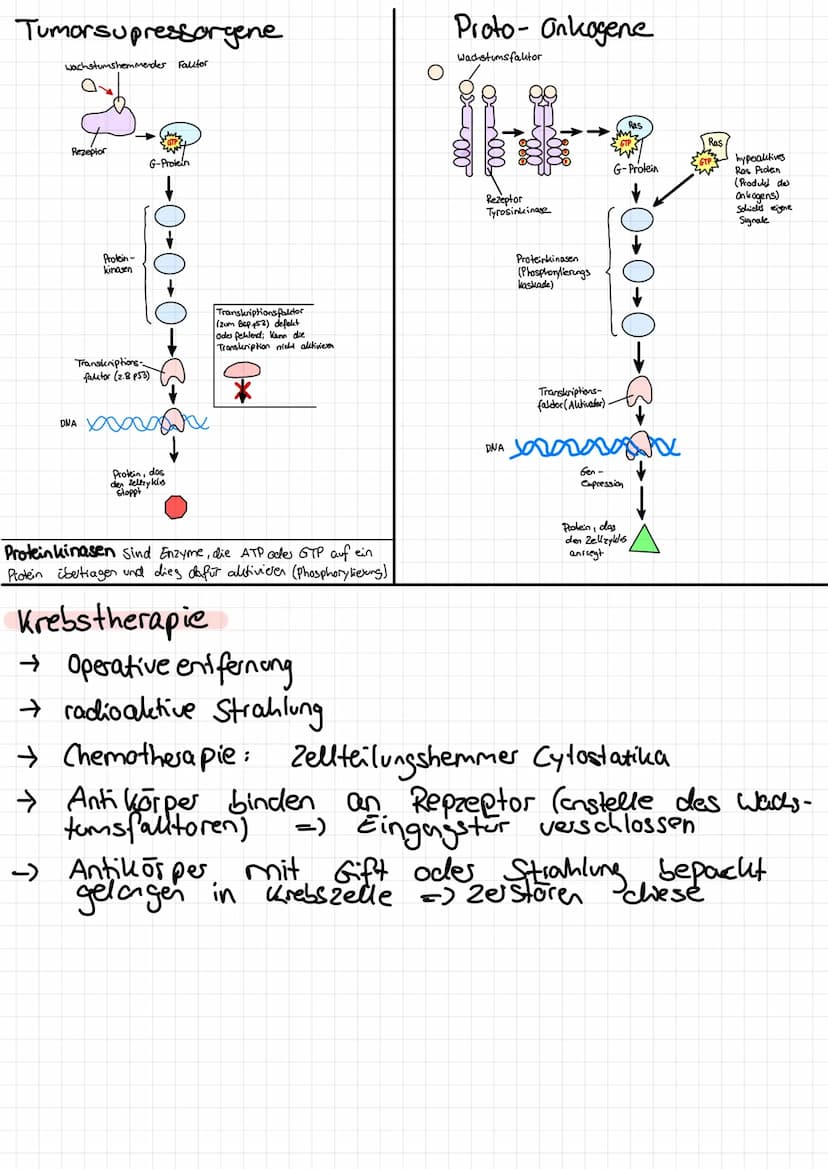 Tumorsupressorgene
wachstumshemmender Faktor
Rezeptor
GTP
G-Protein
Protein-
kinasen
Transkriptionsfaktor
(zum Bsp p53) defekt
oder fehlend; kann die
Transkription nicht aktivieren
Transkriptions-
faktor (z.B p53)
DNA
Protein, das
den Zellzyklus
stoppt
Proteinkinasen sind Enzyme, die ATP oder GTP auf ein
Protein übertragen und dies dafür aktivieren (Phosphorylierung)
Proto-Onkogene
Wachstumsfaktor
Rezeptor
Tyrosinkinase
Ras
GTP
G-Protein
Ras
GTP
hyperaktives
Ras Protein
(Produkt des
Onkogens)
schickt eigene
Signale
Proteinkinasen
(Phosphorylierungs
kaskade)
Transkriptions-
faktor (Aktivator)
DNA
Gen-
Expression
Protein, das
den Zellzyklus
anregt
Krebstherapie
→ Operative entfernung
→ radioaktive Strahlung
→ Chemotherapie: Zellteilungshemmer Cytostatika
→ Antikörper binden an Repzeptor (anstelle des Wachs-
tumsfaktoren) => Eingangstür verschlossen
→ Antikörper mit Gift oder Strahlung bepackt
gelangen in Krebszelle => zerstören diese